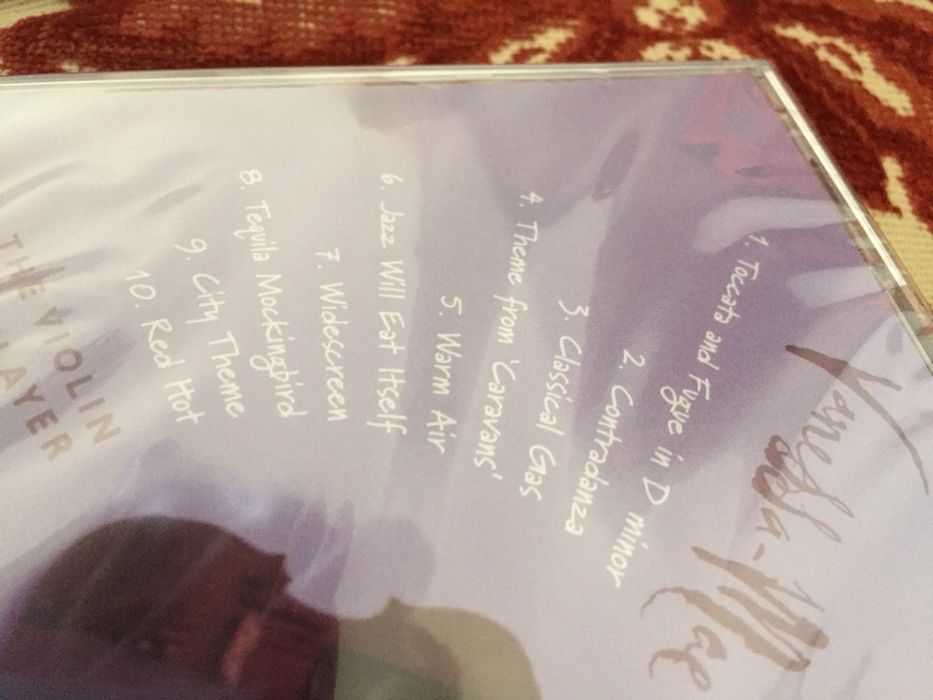 Vanessa-Mae
1. Toccata and Fugue in D minor
2. Contradanza
3. Classical Gas
4. Theme from 'Caravans'
5. Warm Air
6. Jazz Will Eat Itself
7. Widescreen
8. Tequila Mockingbird
9. City Theme
10. Red Hot
THE VIOLIN
LAYER